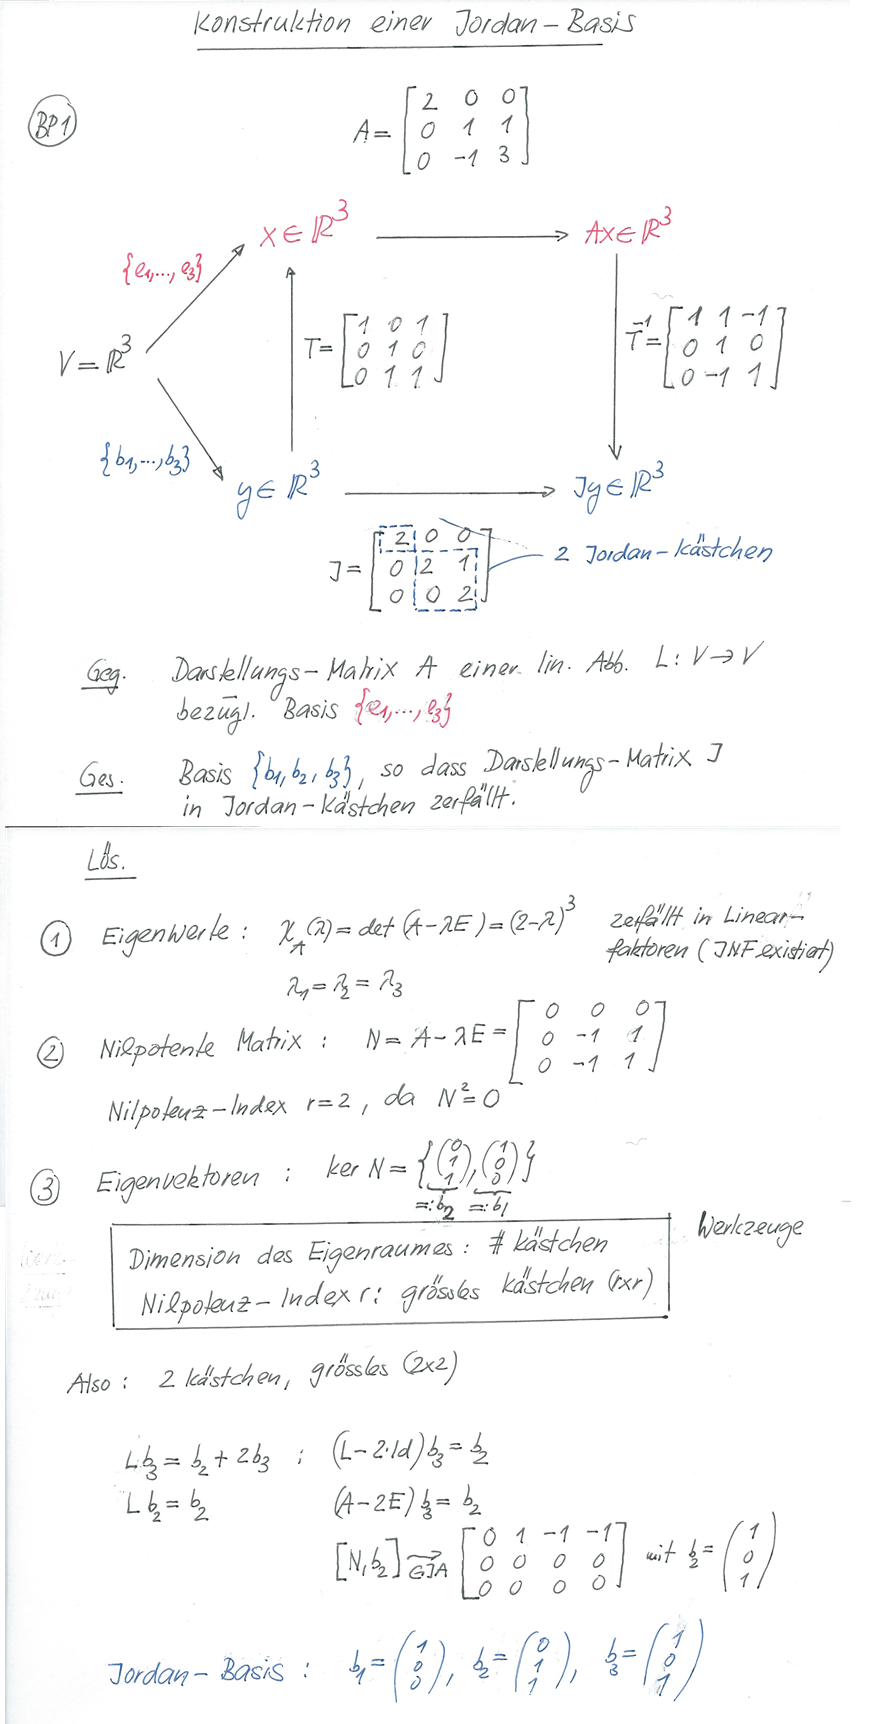 Konstruktion einer Jordan-Basis
BP1
A = [2 0 0; 0 1 1; 0 -1 3]
x ∈ ℝ³ Ax ∈ ℝ³
{e₁,...,e₃}
V = ℝ³ T = [1 0 1; 0 1 0; 0 1 1] T⁻¹ = [1 1 -1; 0 1 0; 0 -1 1]
{b₁,...,b₃}
y ∈ ℝ³ Jy ∈ ℝ³
J = [2 0 0; 0 2 1; 0 0 2] 2 Jordan-Kästchen
Geg. Darstellungs-Matrix A einer lin. Abb. L: V → V
bezügl. Basis {e₁,...,e₃}
Ges. Basis {b₁, b₂, b₃}, so dass Darstellungs-Matrix J
in Jordan-Kästchen zerfällt.
Lös.
① Eigenwerte: χ_A(λ) = det (A-λE) = (2-λ)³ zerfällt in Linear-
faktoren (JNF existiert)
λ₁ = λ₂ = λ₃
② Nilpotente Matrix: N = A - λE = [0 0 0; 0 -1 1; 0 -1 1]
Nilpotenz-Index r=2, da N² = 0
③ Eigenvektoren: ker N = {(0 1 1), (1 0 0)}
=:b₂ =:b₁
Werkzeuge
Dimension des Eigenraumes: # Kästchen
Nilpotenz-Index r: grösstes Kästchen (r×r)
Also: 2 Kästchen, grösstes (2×2)
Lb₃ = b₂ + 2b₃ ; (L-2·Id)b₃ = b₂
Lb₂ = b₂ (A-2E) b₃ = b₂
[N, b₂] → GJA [0 1 -1 -1; 0 0 0 0; 0 0 0 0] mit b₂ = (1 0 1)
Jordan-Basis: b₁ = (1 0 0), b₂ = (0 1 1), b₃ = (1 0 1)